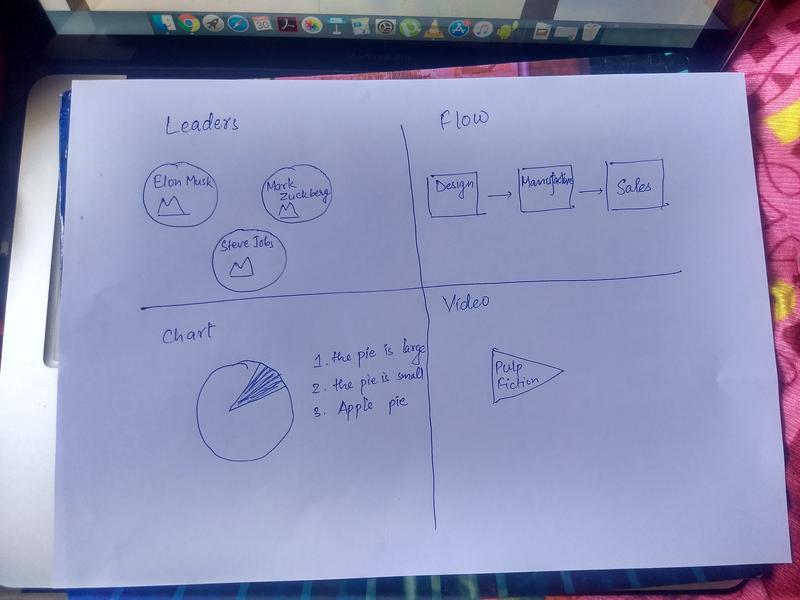 Leaders
Elon Musk
Mark
Zuckberg
Steve Jobs
Flow
Design
Sales
Chart
1. the pie is large
2. the pie is small
3. Apple pie
Video
Pulp
Fiction